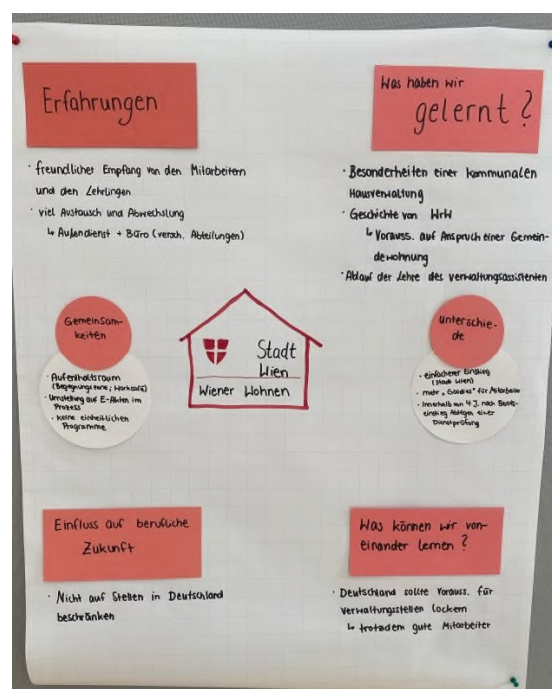 Erfahrungen
· freundlicher Empfang von den Mitarbeitern
und den Lehrlingen
· viel Austausch und Abwechslung
↳ Außendienst + Büro (versch. Abteilungen)
Was haben wir
gelernt?
· Besonderheiten einer kommunalen
Hausverwaltung
· Geschichte von WrW
↳ Vorauss. auf Anspruch einer Gemein-
dewohnung
· Ablauf der Lehre des Verwaltungsassistenten
Gemeinsam-
keiten
· Aufenthaltsraum
(Begegnungszone, Workcafé)
· Umstellung auf E-Akten im
Prozess
· keine einheitlichen
Programme
Stadt
Wien
Wiener Wohnen
Unterschie-
de
· einfacherer Einstieg
(Stadt Wien)
· mehr "Goodies" für Mitarbeiter
· Innerhalb von 4 J. nach Berufs-
einstieg Ablegen einer
Dienstprüfung
Einfluss auf berufliche
Zukunft
· Nicht auf Stellen in Deutschland
beschränken
Was können wir von-
einander lernen?
· Deutschland sollte Vorauss. für
Verwaltungsstellen lockern
↳ trotzdem gute Mitarbeiter